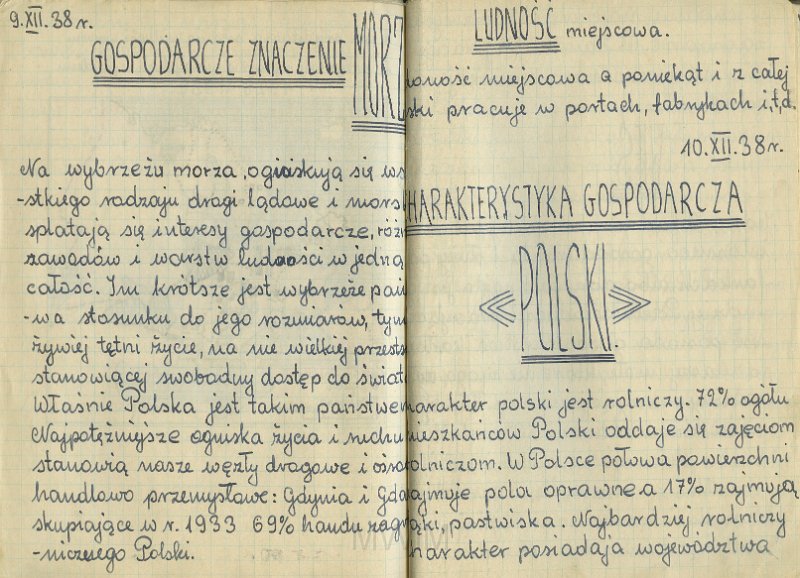 9.XII.38 r.
GOSPODARCZE ZNACZENIE MORZ
Na wybrzeżu morza, ogniskują się ws
-stkiego rodzaju drogi lądowe i mors
splatają się interesy gospodarcze, różn
zawodów i warstw ludności w jedną
całość. Im krótsze jest wybrzeże pań
-wa stosunku do jego rozmiarów, tym
żywiej tętni życie, na nie wielkiej przest
stanowiącej swobodny dostęp do świat
Właśnie Polska jest takim państwe
Najpotężniejsze ogniska życia i ruchu
stanowią nasze węzły drogowe i ośro
handlowo przemysłowe: Gdynia i Gda
skupiające w r. 1933 69% handu zagr
-nicznego Polski.
LUDNOŚĆ miejscowa.
ność miejscowa a poniekąt i z całej
ski pracuje w portach, fabrykach i,t,d.
10.XII.38 r.
HARAKTERYSTYKA GOSPODARCZA
≪POLSKI≫.
harakter polski jest rolniczy. 72% ogółu
ieszkańców Polski oddaje się zajęciom
olniczom. W Polsce połowa powierzchni
ajmuje pola oprawne a 17% zajmują
ąki, pastwiska. Najbardziej rolniczy
harakter posiadaja województwa
MWM